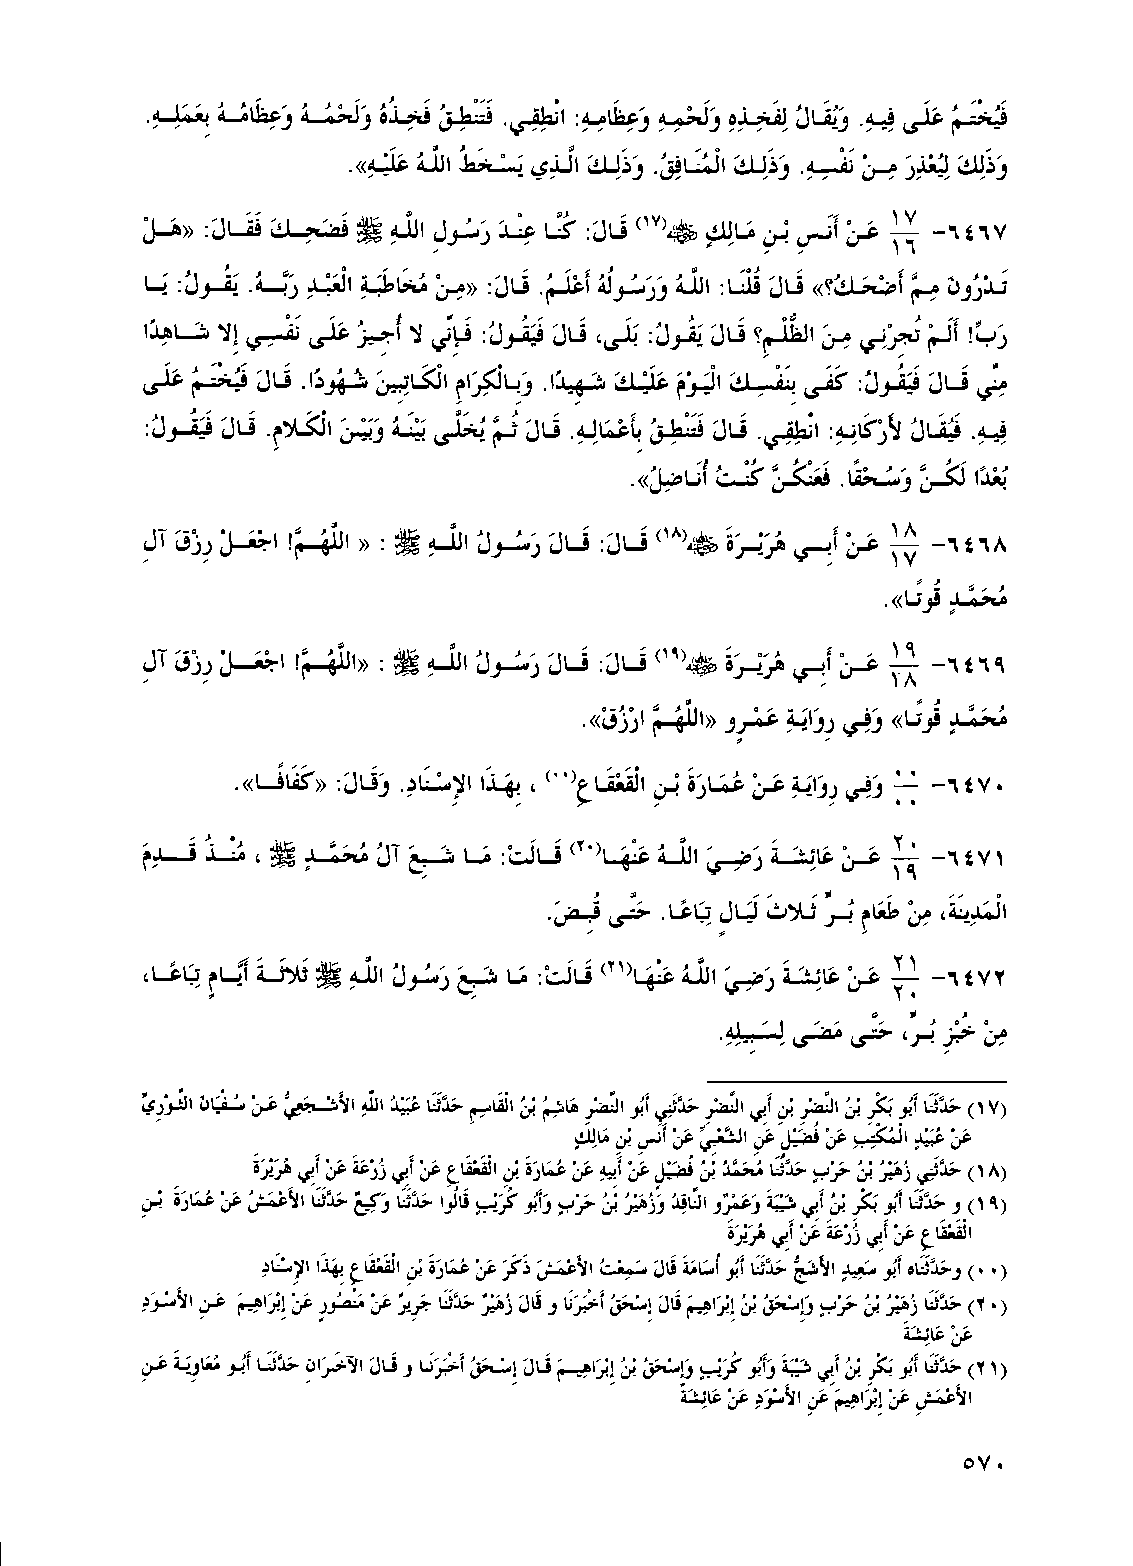 فَيُخْتَمُ عَلَى فِيهِ. وَيُقَالُ لِفَخِذِهِ وَلَحْمِهِ وَعِظَامِهِ: انْطِقِي. فَتَنْطِقُ فَخِذُهُ وَلَحْمُهُ وَعِظَامُهُ بِعَمَلِهِ.
وَذَلِكَ لِيُعْذِرَ مِنْ نَفْسِهِ. وَذَلِكَ الْمُنَافِقُ. وَذَلِكَ الَّذِي يَسْخَطُ اللَّهُ عَلَيْهِ».
٦٤٦٧- ١٧/١٦ عَنْ أَنَسِ بْنِ مَالِكٍ ﷺ(١٧) قَالَ: كُنَّا عِنْدَ رَسُولِ اللَّهِ ﷺ فَضَحِكَ فَقَالَ: «هَلْ
تَدْرُونَ مِمَّ أَضْحَكُ؟» قَالَ قُلْنَا: اللَّهُ وَرَسُولُهُ أَعْلَمُ. قَالَ: «مِنْ مُخَاطَبَةِ الْعَبْدِ رَبَّهُ. يَقُولُ: يَا
رَبِّ! أَلَمْ تُجِرْنِي مِنَ الظُّلْمِ؟ قَالَ يَقُولُ: بَلَى، قَالَ فَيَقُولُ: فَإِنِّي لا أُجِيزُ عَلَى نَفْسِي إِلا شَاهِدًا
مِنِّي قَالَ فَيَقُولُ: كَفَى بِنَفْسِكَ الْيَوْمَ عَلَيْكَ شَهِيدًا. وَبِالْكِرَامِ الْكَاتِبِينَ شُهُودًا. قَالَ فَيُخْتَمُ عَلَى
فِيهِ. فَيُقَالُ لأَرْكَانِهِ: انْطِقِي. قَالَ فَتَنْطِقُ بِأَعْمَالِهِ. قَالَ ثُمَّ يُخَلَّى بَيْنَهُ وَبَيْنَ الْكَلامِ. قَالَ فَيَقُولُ:
بُعْدًا لَكُنَّ وَسُحْقًا. فَعَنْكُنَّ كُنْتُ أُنَاضِلُ».
٦٤٦٨- ١٨/١٧ عَنْ أَبِي هُرَيْرَةَ (١٨) قَالَ: قَالَ رَسُولُ اللَّهِ ﷺ : « اللَّهُمَّ! اجْعَلْ رِزْقَ آلِ
مُحَمَّدٍ قُوتًا».
٦٤٦٩- ١٩/١٨ عَنْ أَبِي هُرَيْرَةَ (١٩) قَالَ: قَالَ رَسُولُ اللَّهِ ﷺ : «اللَّهُمَّ! اجْعَلْ رِزْقَ آلِ
مُحَمَّدٍ قُوتًا» وَفِي رِوَايَةِ عَمْرٍو «اللَّهُمَّ ارْزُقْ».
٦٤٧٠- ٠٠/٠٠ وَفِي رِوَايَةٍ عَنْ عُمَارَةَ بْنِ الْقَعْقَاعِ(٠٠) ، بِهَذَا الإِسْنَادِ. وَقَالَ: «كَفَافًا».
٦٤٧١- ٢٠/١٩ عَنْ عَائِشَةَ رَضِيَ اللَّهُ عَنْهَا(٢٠) قَالَتْ: مَا شَبِعَ آلُ مُحَمَّدٍ ﷺ ، مُنْذُ قَدِمَ
الْمَدِينَةَ، مِنْ طَعَامِ بُرٍّ ثَلاثَ لَيَالٍ تِبَاعًا. حَتَّى قُبِضَ.
٦٤٧٢- ٢١/٢٠ عَنْ عَائِشَةَ رَضِيَ اللَّهُ عَنْهَا(٢١) قَالَتْ: مَا شَبِعَ رَسُولُ اللَّهِ ﷺ ثَلاثَةَ أَيَّامٍ تِبَاعًا،
مِنْ خُبْزِ بُرٍّ، حَتَّى مَضَى لِسَبِيلِهِ.
(١٧) حَدَّثَنَا أَبُو بَكْرِ بْنُ النَّضْرِ بْنِ أَبِي النَّضْرِ حَدَّثَنِي أَبُو النَّضْرِ هَاشِمُ بْنُ الْقَاسِمِ حَدَّثَنَا عُبَيْدُ اللَّهِ الأَشْجَعِيُّ عَنْ سُفْيَانَ الثَّوْرِيِّ
عَنْ عُبَيْدٍ الْمُكْتِبِ عَنْ فُضَيْلٍ عَنِ الشَّعْبِيِّ عَنْ أَنَسِ بْنِ مَالِكٍ
(١٨) حَدَّثَنِي زُهَيْرُ بْنُ حَرْبٍ حَدَّثَنَا مُحَمَّدُ بْنُ فُضَيْلٍ عَنْ أَبِيهِ عَنْ عُمَارَةَ بْنِ الْقَعْقَاعِ عَنْ أَبِي زُرْعَةَ عَنْ أَبِي هُرَيْرَةَ
(١٩) و حَدَّثَنَا أَبُو بَكْرِ بْنُ أَبِي شَيْبَةَ وَعَمْرٌو النَّاقِدُ وَزُهَيْرُ بْنُ حَرْبٍ وَأَبُو كُرَيْبٍ قَالُوا حَدَّثَنَا وَكِيعٌ حَدَّثَنَا الأَعْمَشُ عَنْ عُمَارَةَ بْنِ
الْقَعْقَاعِ عَنْ أَبِي زُرْعَةَ عَنْ أَبِي هُرَيْرَةَ
(٠٠) وحَدَّثَنَاه أَبُو سَعِيدٍ الأَشَجُّ حَدَّثَنَا أَبُو أُسَامَةَ قَالَ سَمِعْتُ الأَعْمَشَ ذَكَرَ عَنْ عُمَارَةَ بْنِ الْقَعْقَاعِ بِهَذَا الإِسْنَادِ
(٢٠) حَدَّثَنَا زُهَيْرُ بْنُ حَرْبٍ وَإِسْحَقُ بْنُ إِبْرَاهِيمَ قَالَ إِسْحَقُ أَخْبَرَنَا و قَالَ زُهَيْرٌ حَدَّثَنَا جَرِيرٌ عَنْ مَنْصُورٍ عَنْ إِبْرَاهِيمَ عَنِ الأَسْوَدِ
عَنْ عَائِشَةَ
(٢١) حَدَّثَنَا أَبُو بَكْرِ بْنُ أَبِي شَيْبَةَ وَأَبُو كُرَيْبٍ وَإِسْحَقُ بْنُ إِبْرَاهِيمَ قَالَ إِسْحَقُ أَخْبَرَنَا و قَالَ الآخَرَانِ حَدَّثَنَا أَبُو مُعَاوِيَةَ عَنِ
الأَعْمَشِ عَنْ إِبْرَاهِيمَ عَنِ الأَسْوَدِ عَنْ عَائِشَةَ
٥٧٠